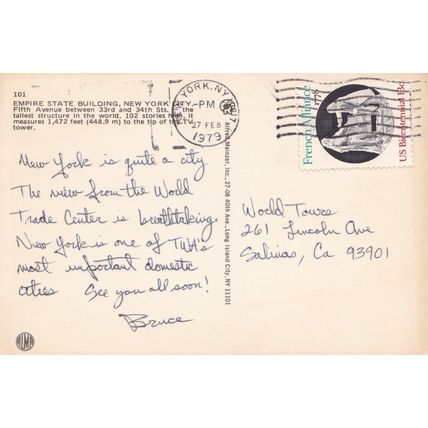 101
EMPIRE STATE BUILDING, NEW YORK CITY.
Fifth Avenue between 33rd and 34th Sts.
tallest structure in the world. 102 stories it
measures 1,472 feet (448.9 m) to the tip of the TV
tower.
New York is quite a city
The view from the World
Trade Center is breathtaking.
New York is one of TWA's
most important domestic
cities See you all soon!
Bruce
YORK, NY
PM
27 FEB
1979
French Alliance
1778
US Bicentennial 13c
Alfred Mainzer, Inc., 27-08 40th Ave., Long Island City, NY 11101
World Tours
261 Lincoln Ave
Salinas, Ca 93901